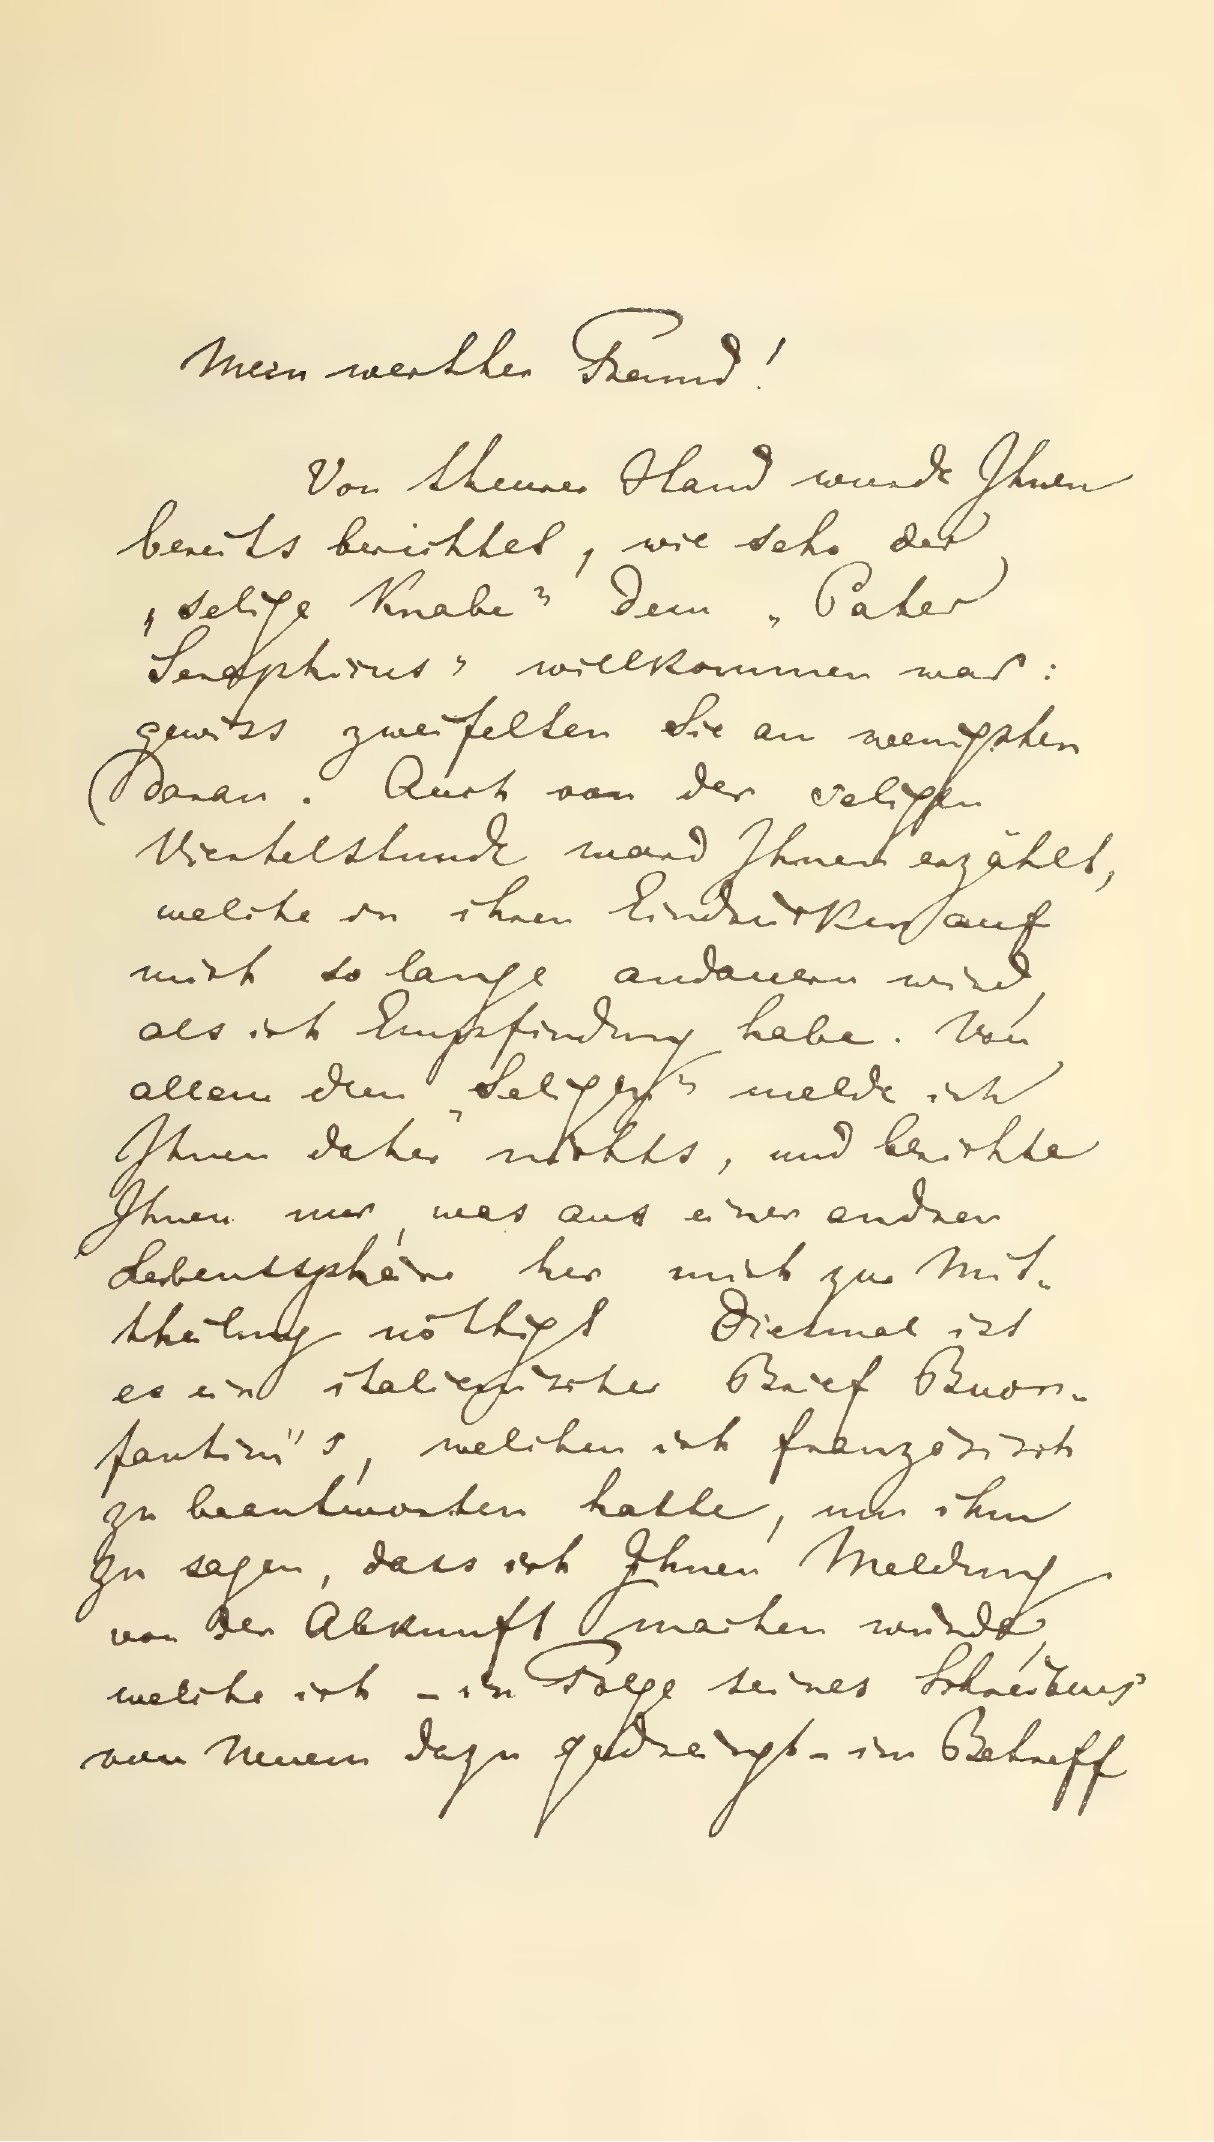 Mein werther Freund!
Von theurer Hand wurde Ihnen
bereits berichtet, wie sehr der
„selige Knabe” dem „Pater
Seraphicus” willkommen war:
gewiss zweifelten Sie am wenigsten
daran. Auch von der seligen
Viertelstunde ward Ihnen erzählt,
welche in ihren Eindrücken auf
mich so lange andauern wird,
als ich Empfindung habe. Von
allem dem „Seligen” melde ich
Ihnen daher nichts, und berichte
Ihnen nur, was aus einer andren
Lebenssphäre her mich zur Mit-
theilung nöthigt Diesmal ist
es ein italienischer Brief Buon-
fantini's, welchen ich französisch
zu beantworten hatte, um ihm
zu sagen, dass ich Ihnen Meldung
von der Abkunft machen würde,
welche ich - in Folge seines Schreibens
von Neuem dazu gedrängt - im Betreff